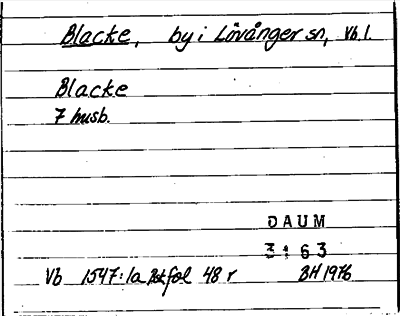 Blacke, by i Lövånger sn, Vb. l.
Blacke
7 husb.
DAUM
3163
Vb 1547:1a fol 48 r BH 1976